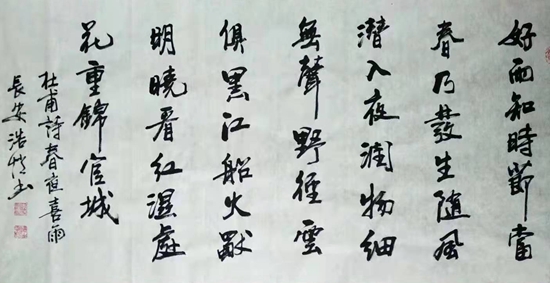 好雨知時節當
春乃發生隨風
潛入夜潤物細
無聲野徑雲
俱黑江船火
明曉看紅濕處
花重錦官城
杜甫詩春夜喜雨
長安浩书